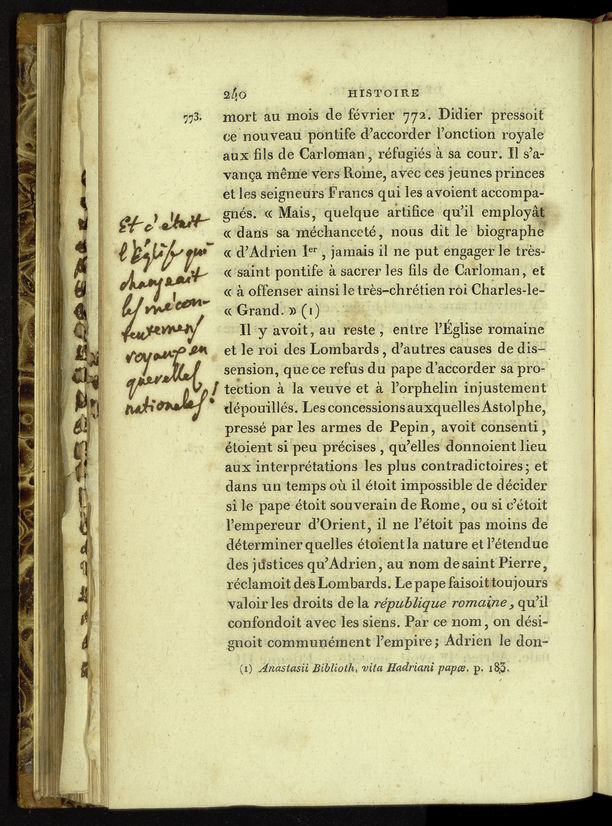 240 HISTOIRE
773.
mort au mois de février 772. Didier pressoit
ce nouveau pontife d'accorder l'onction royale
aux fils de Carloman, réfugiés à sa cour. Il s'a-
vança même vers Rome, avec ces jeunes princes
et les seigneurs Francs qui les avoient accompa-
gnés. « Mais, quelque artifice qu'il employât
« dans sa méchanceté, nous dit le biographe
« d'Adrien Ier, jamais il ne put engager le très-
« saint pontife à sacrer les fils de Carloman, et
« à offenser ainsi le très-chrétien roi Charles-le-
« Grand. » (1)
Il y avoit, au reste, entre l'Église romaine
et le roi des Lombards, d'autres causes de dis-
sension, que ce refus du pape d'accorder sa pro-
tection à la veuve et à l'orphelin injustement
dépouillés. Les concessions auxquelles Astolphe,
pressé par les armes de Pepin, avoit consenti,
étoient si peu précises, qu'elles donnoient lieu
aux interprétations les plus contradictoires; et
dans un temps où il étoit impossible de décider
si le pape étoit souverain de Rome, ou si c'étoit
l'empereur d'Orient, il ne l'étoit pas moins de
déterminer quelles étoient la nature et l'étendue
des justices qu'Adrien, au nom de saint Pierre,
réclamoit des Lombards. Le pape faisoit toujours
valoir les droits de la république romaine, qu'il
confondoit avec les siens. Par ce nom, on dési-
gnoit communément l'empire; Adrien le don-
(1) Anastasii Biblioth. vita Hadriani papæ. p. 183.
Et c'était
l'Église qui
changeait
les mécon-
tentemens
royaux en
querelles
nationales!